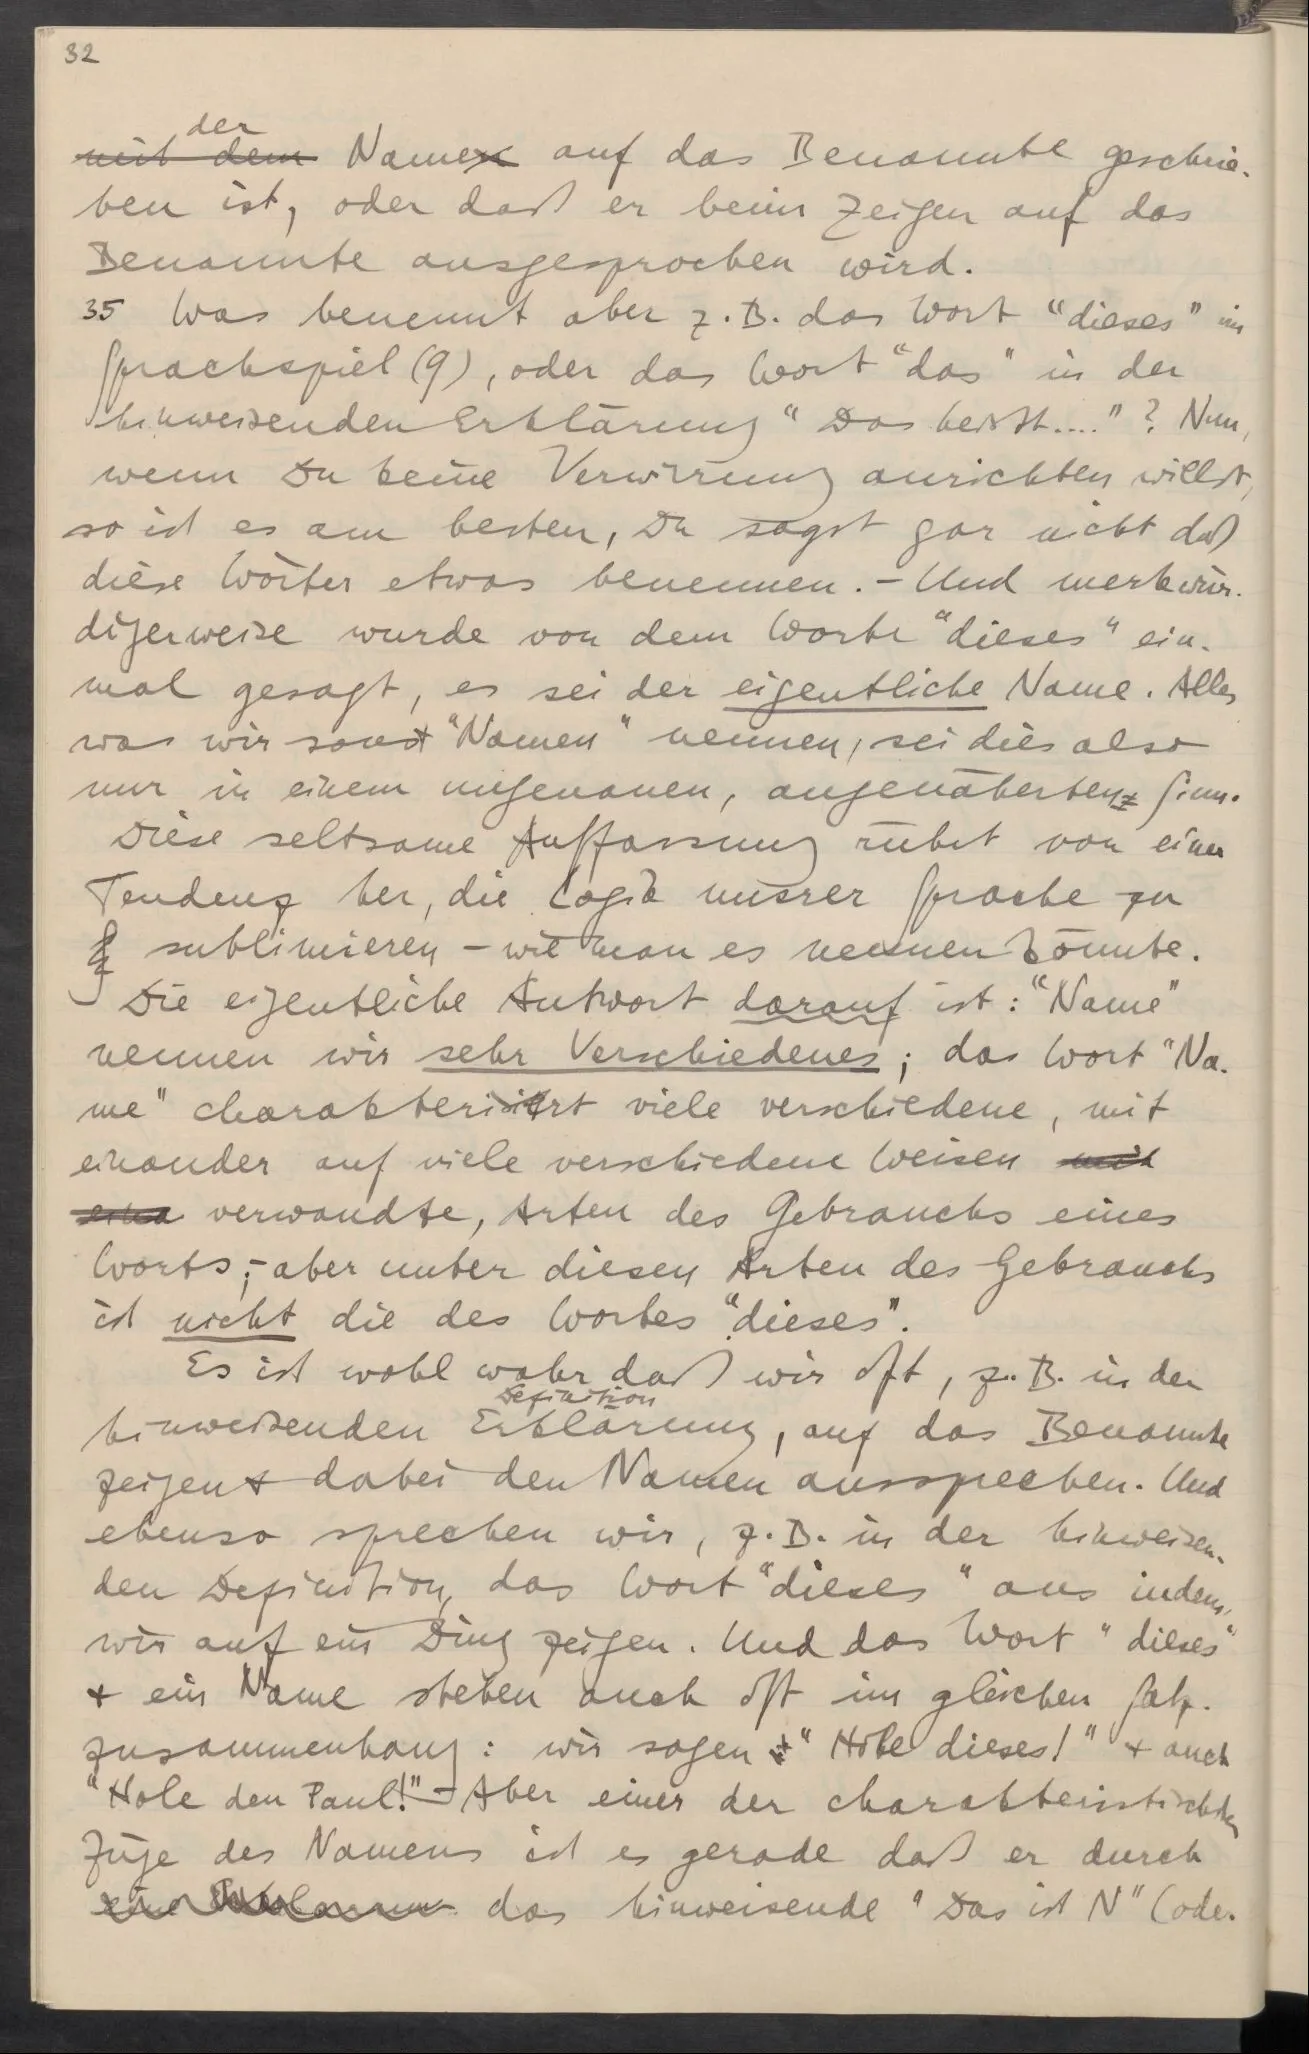 32
der
mit dem Namen auf das Benannte geschrie-
ben ist, oder daß er beim Zeigen auf das
Benannte ausgesprochen wird.
35 Was benennt aber z.B. das Wort "dieses" im
Sprachspiel (9), oder das Wort "das" in der
hinweisenden Erklärung "Das heißt...."? Nun,
wenn Du keine Verwirrung anrichten willst,
so ist es am besten, Du sagst gar nicht daß
diese Wörter etwas benennen. – Und merkwür-
digerweise wurde von dem Worte "dieses" ein-
mal gesagt, es sei der eigentliche Name. Alles
was wir sonst "Namen" nennen, sei dies also
nur in einem ungenauen, angenäherten Sinn.
Diese seltsame Auffassung rührt von einer
Tendenz her, die Logik unsrer Sprache zu
sublimieren – wie man es nennen könnte.
Die eigentliche Antwort darauf ist: "Name"
nennen wir sehr Verschiedenes; das Wort "Na-
me" charakterisiert viele verschiedene, mit
einander auf viele verschiedene Weisen mit
eina verwandte, Arten des Gebrauchs eines
Worts; – aber unter diesen Arten des Gebrauchs
ist nicht die des Wortes "dieses".
Es ist wohl wahr daß wir oft, z.B. in der
Definition
hinweisenden Erklärung, auf das Benannte
zeigen + dabei den Namen aussprechen. Und
ebenso sprechen wir, z.B. in der hinweisen-
den Definition, das Wort "dieses" aus indem
wir auf ein Ding zeigen. Und das Wort "dieses"
+ ein Name stehen auch oft im gleichen Satz-
zusammenhang: wir sagen "Hole dieses!" + auch
"Hole den Paul!" – Aber einer der charakteristischsten
Züge des Namens ist es gerade daß er durch
eine das hinweisende "Das ist N" (oder